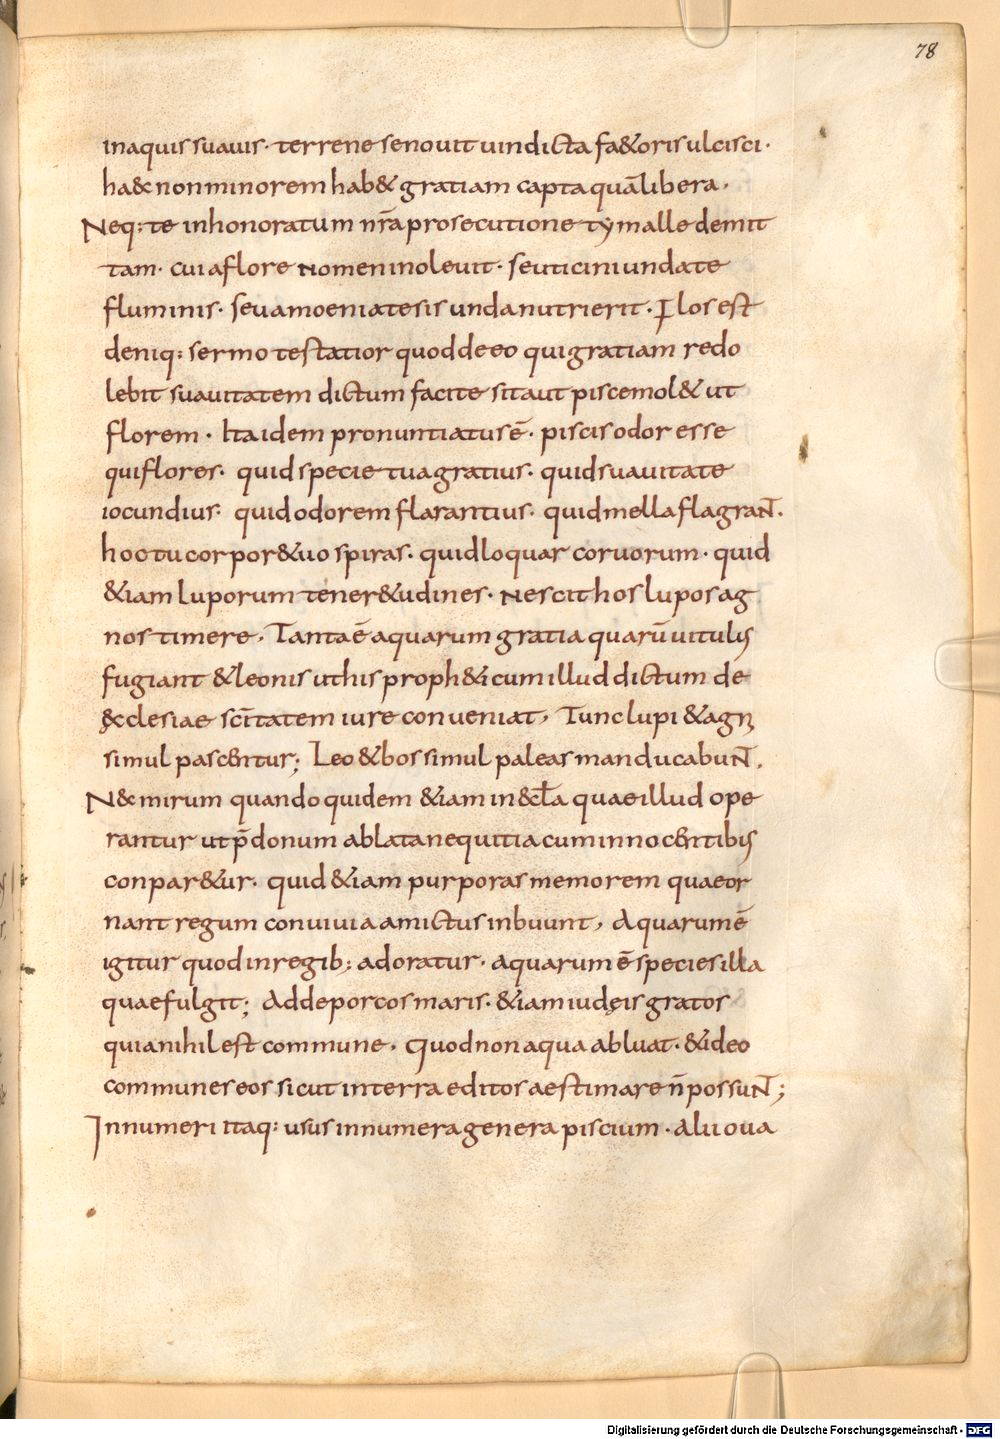 78
in aquis suauis· terrene se nouit uindicta faetoris ulcisci·
haec non minorem habet gratiam capta quā libera·
Neq: te inhonoratum nr̄a prosecutione tymalle demit
tam· cui a flore nomen inoleuit· seu ticini undate
fluminis· seu amoeni atesis unda nutrierit· Flos est
deniq: sermo testatior quod de eo qui gratiam redo
lebit suauitatem dictum facite sit aut piscem olet ut
florem· Ita idem pronuntiatus ē· piscis odor esse
qui flores· quid specie tua gratius· quid suauitate
iocundius· quid odorem flarantius· quid mella flagrant·
hoc tu corpore tuo spiras· quid loquar coruorum· quid
etiam luporum teneretudines· Nescit hos lupos ag
nos timere· Tanta ē aquarum gratia quarū uitulis
fugiant et leonis ut his propheticum illud dictum de
ecclesiae sc̄itatem iure conueniat, Tunc lupi et agni
simul pascentur; Leo et bos simul paleas manducabunt,
Nec mirum quando quidem etiam in eccl̄a quae illud ope
rantur ut p̄donum ablata nequitia cum innocentibus
conparetur· quid etiam purporas memorem quae or
nant regum conuiuia amictus inbuunt, Aquarum ē
igitur quod in regib; adoratur· aquarum ē species illa
quae fulgit; Adde porcos maris· etiam iudęis gratos
quia nihil est commune, Quod non aqua abluat· et ideo
communes eos sicut in terra editos aestimare n̄ possunt;
Innumeri itaq: usus innumera genera piscium· alii oua
Digitalisierung gefördert durch die Deutsche Forschungsgemeinschaft - DFG